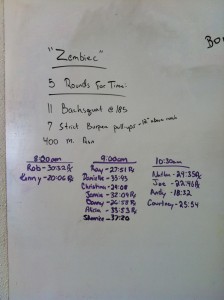 "Zembiec"
5 Rounds For Time:
11 Backsquat @ 185
7 Strict Burpee pull-ups - 12" above reach
400 m. Run
8:30am
Rob - 30:32 Rx
Kenny - 20:06 Rx
9:00am
Ray - 27:51 Rx
Danielle - 33:45
Christina - 24:08
Jamie - 32:04 Rx
Danny - 26:59 Rx
Alicia - 33:53 Rx
Shanice - 37:20
10:30am
Nathan - 24:35 Rx
Joe - 22:46 Rx
Andy - 18:32
Courtney - 25:54